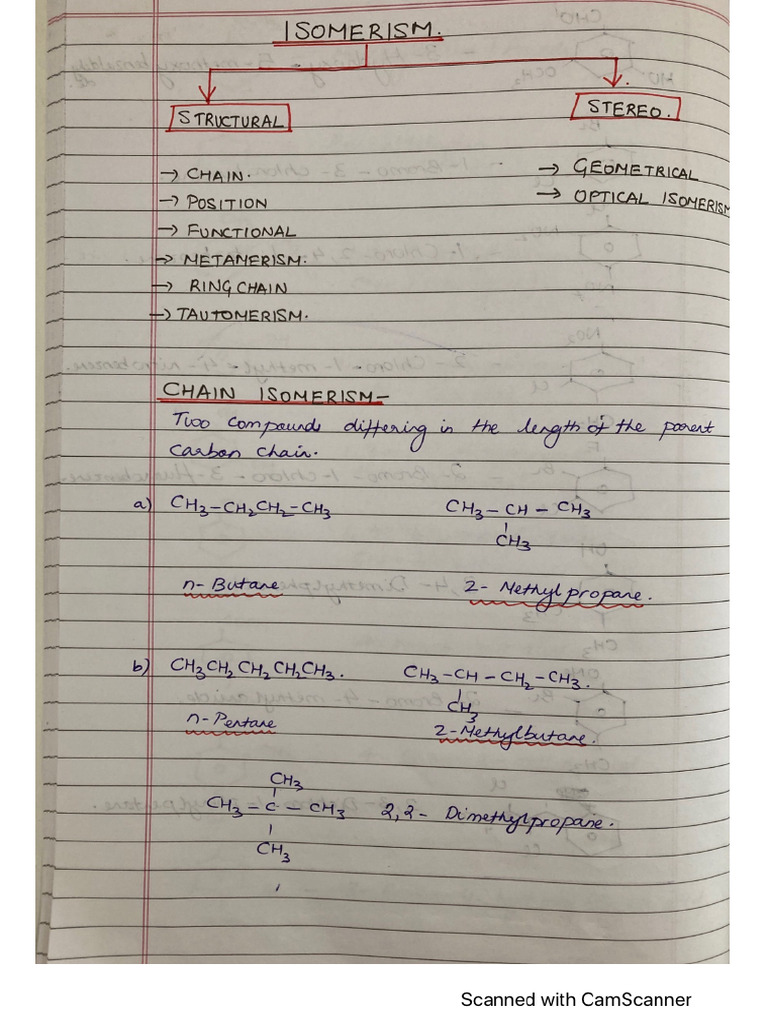 ISOMERISM.
STRUCTURAL
STEREO.
→ CHAIN.
→ POSITION
→ FUNCTIONAL
→ METAMERISM.
→ RING CHAIN
→ TAUTOMERISM.
→ GEOMETRICAL
→ OPTICAL ISOMERISM
CHAIN ISOMERISM-
Two compounds differing in the length of the parent
carbon chain.
a) CH₃-CH₂CH₂-CH₃ CH₃-CH-CH₃
CH₃
n-Butane 2-Methylpropane.
b) CH₃CH₂CH₂CH₂CH₃. CH₃-CH-CH₂-CH₃.
CH₃
n-Pentane 2-Methylbutane.
CH₃
CH₃-C-CH₃ 2,2-Dimethylpropane.
CH₃
Scanned with CamScanner